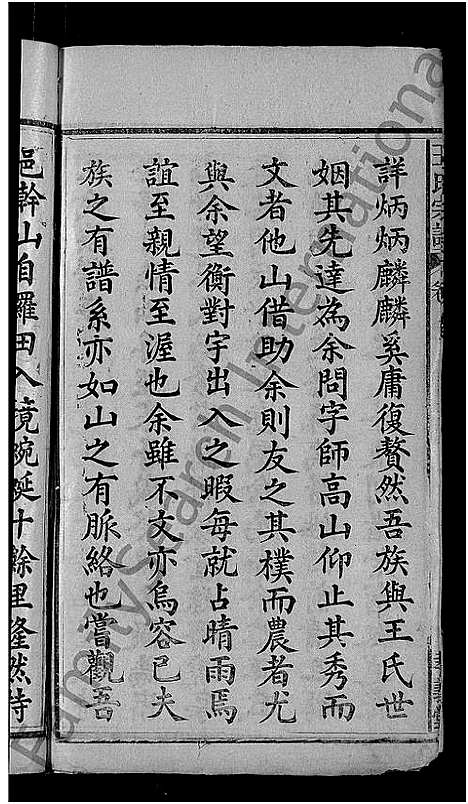 王氏宗譜
詳炳炳麟麟奚庸復贅然吾族與王氏世
姻其先達為余問字師高山仰止其秀而
文者他山借助余則友之其樸而農者尤
與余望衡對宇出入之暇每就占晴雨焉
誼至親情至渥也余雖不文亦烏容已夫
族之有譜系亦如山之有脈絡也嘗觀吾
邑幹山自羅田入境蜿蜒十餘里隆然特
FamilySearch International